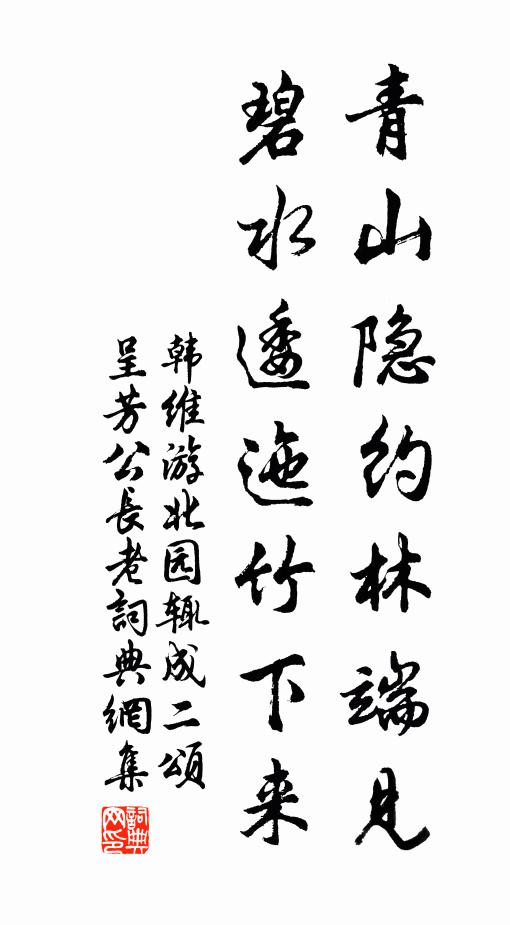 青山隐约林端见
碧水逶迤竹下来
韩维游北园辄成二頌
呈芳公長老詞典網集
詞典网印